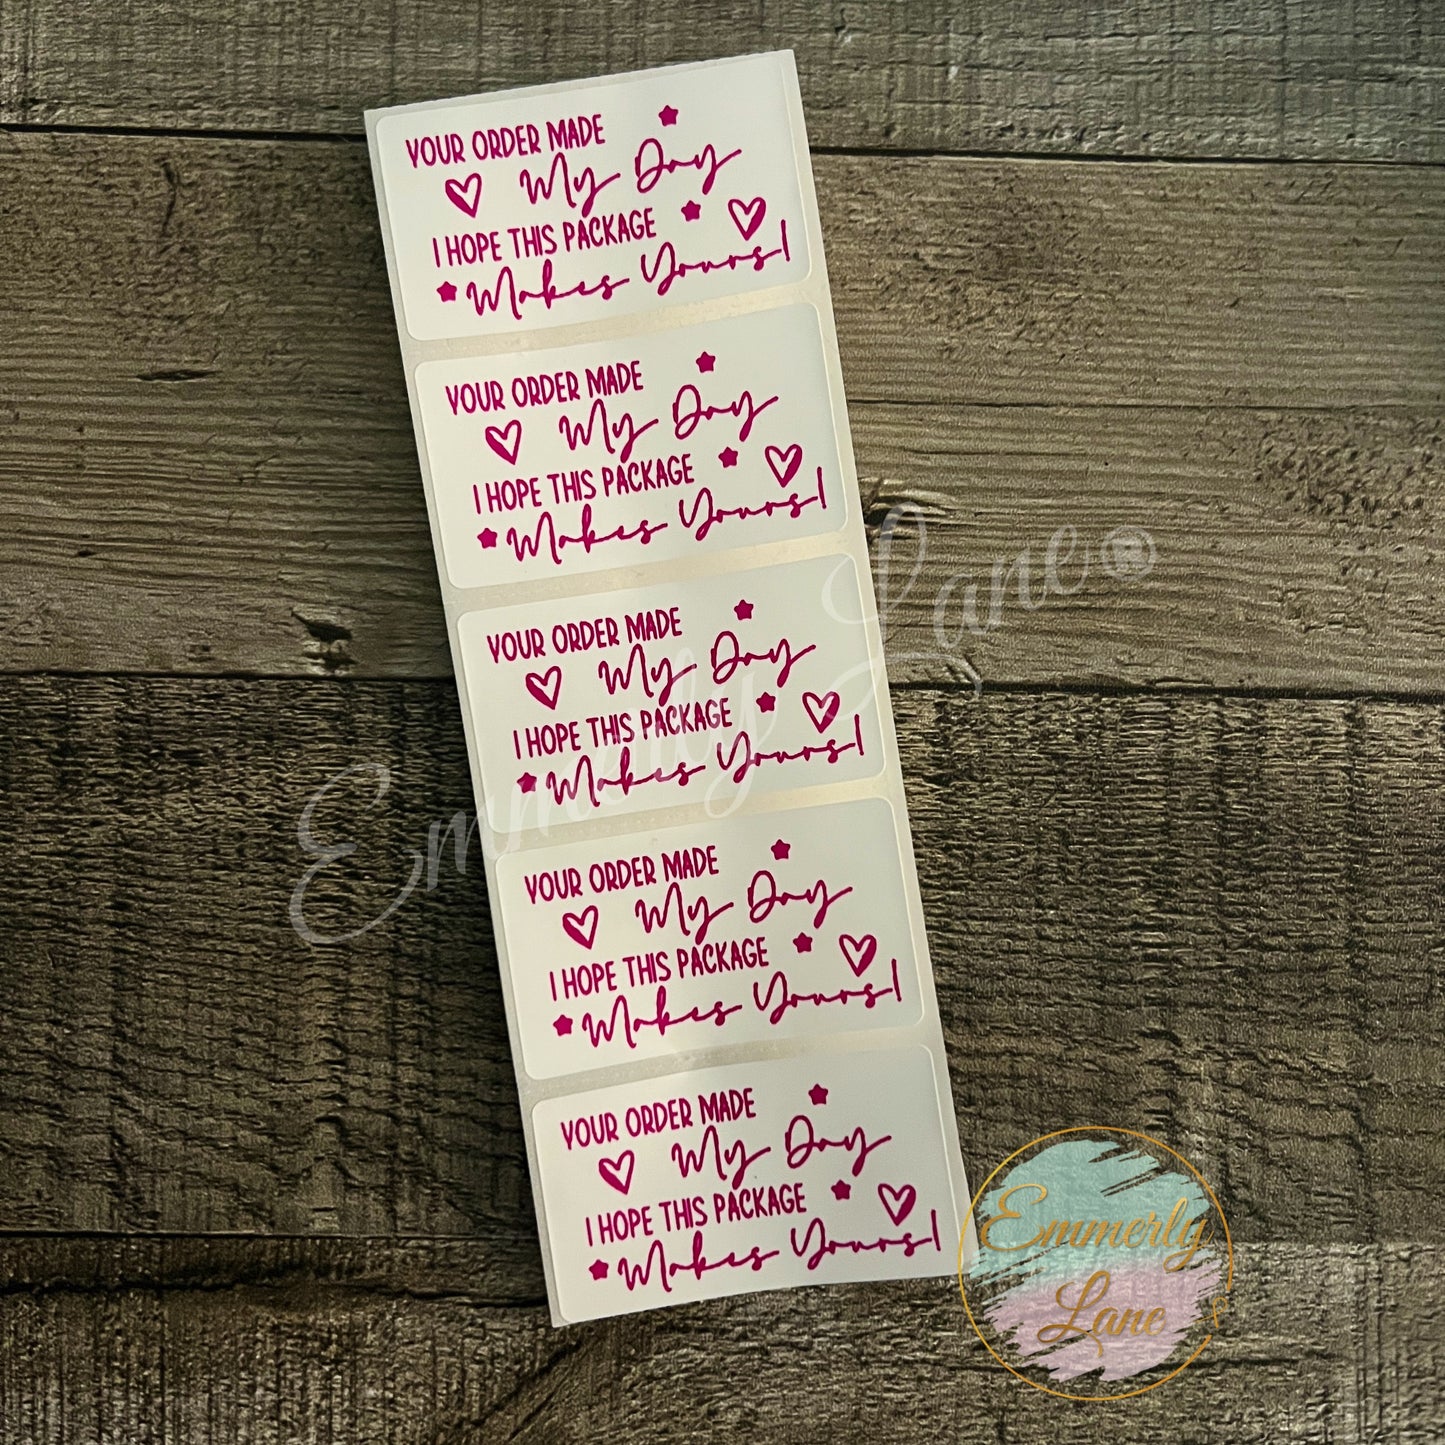 YOUR ORDER MADE
My Day
I HOPE THIS PACKAGE
Makes Yours!
YOUR ORDER MADE
My Day
I HOPE THIS PACKAGE
Makes Yours!
YOUR ORDER MADE
My Day
I HOPE THIS PACKAGE
Makes Yours!
YOUR ORDER MADE
My Day
I HOPE THIS PACKAGE
Makes Yours!
YOUR ORDER MADE
My Day
I HOPE THIS PACKAGE
Makes Yours!
Emmerly Lane®
Emmerly
Lane